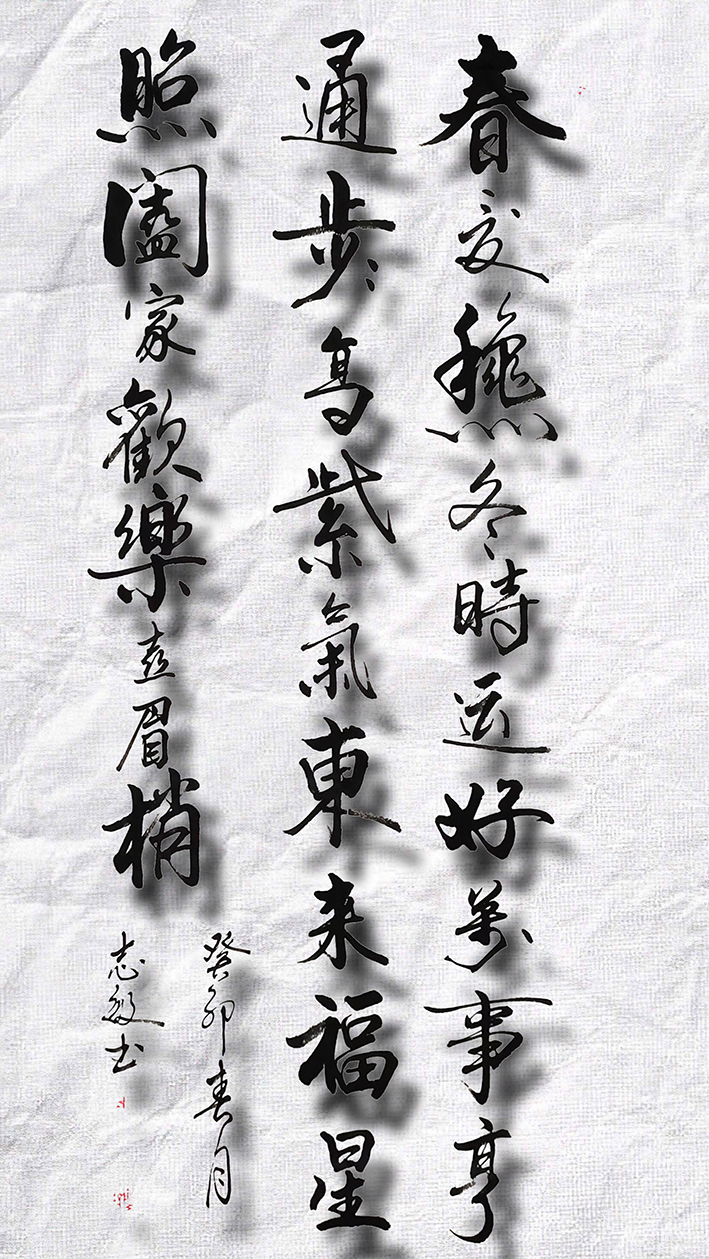 春夏龝冬時运好萬事亨
通步々高紫氣東来福星
照闔家歡樂喜眉梢
癸卯春月
志书